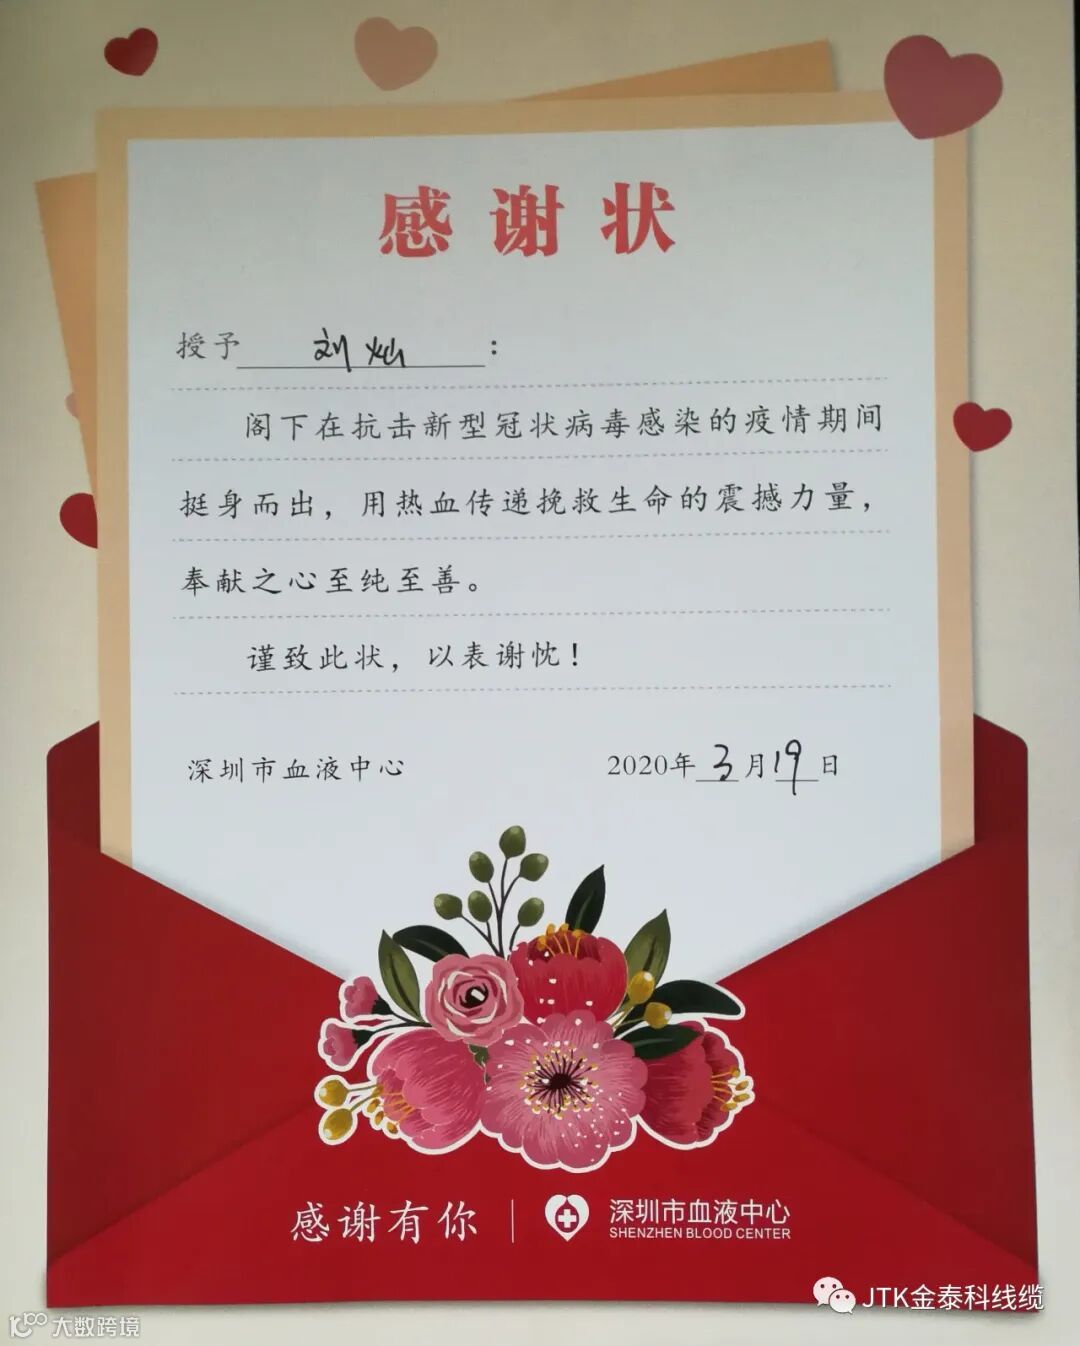 感谢状
授予 刘灿 :
阁下在抗击新型冠状病毒感染的疫情期间
挺身而出，用热血传递挽救生命的震撼力量，
奉献之心至纯至善。
谨致此状，以表谢忱！
深圳市血液中心 2020年 3 月 19 日
感谢有你 深圳市血液中心
SHENZHEN BLOOD CENTER
JTK金泰科线缆
大数跨境